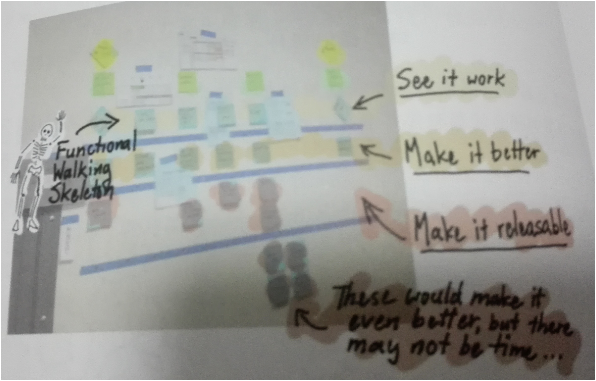 See it work
Functional
Walking
Skeleton
Make it better
Make it releasable
These would make it
even better, but there
may not be time...